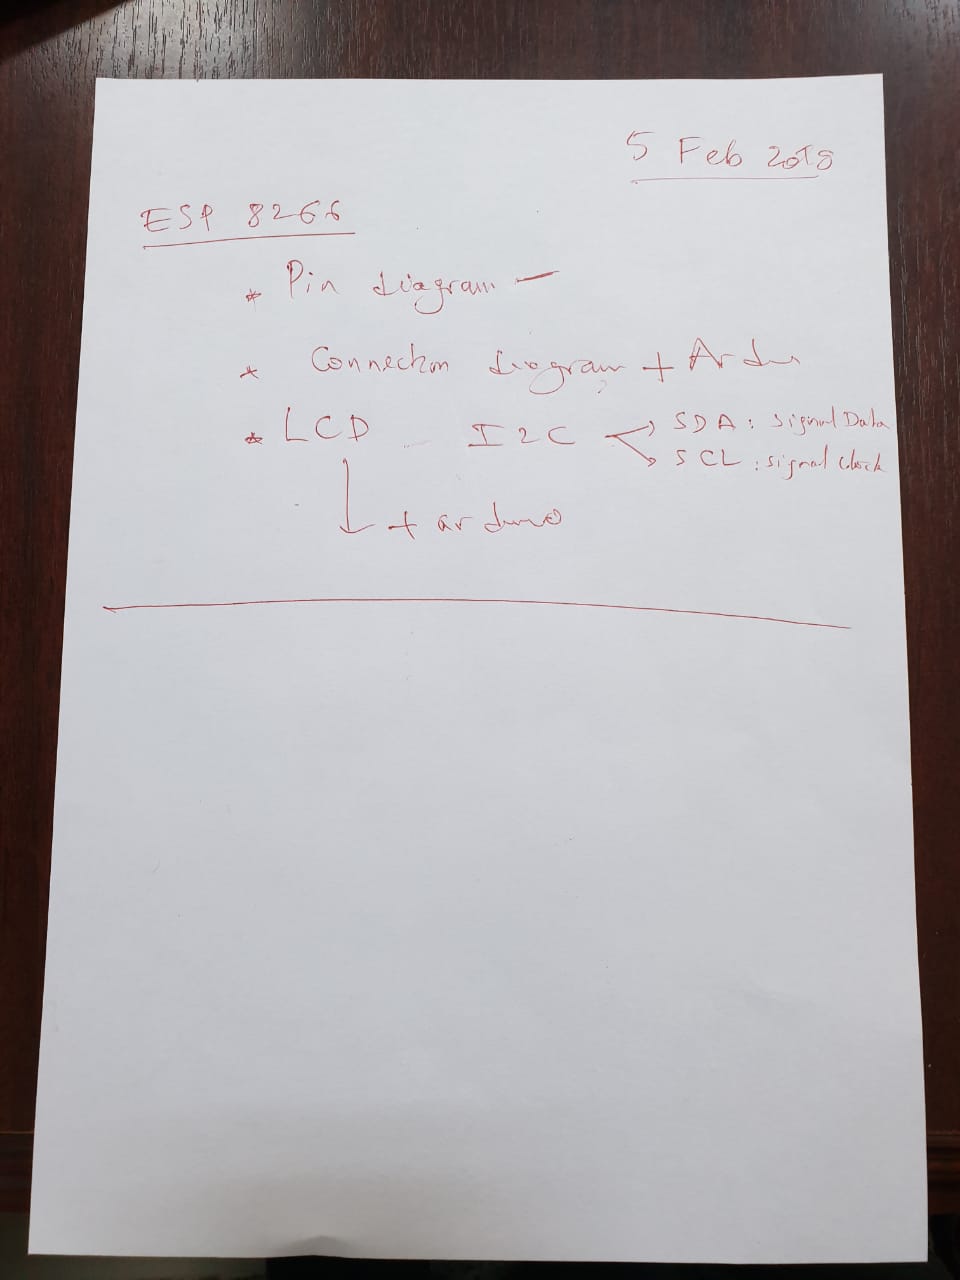 5 Feb 2018
ESP 8266
* Pin diagram -
* Connection diagram + Ardu
* LCD I2C SDA : signal Data
SCL : signal clock
+ arduino